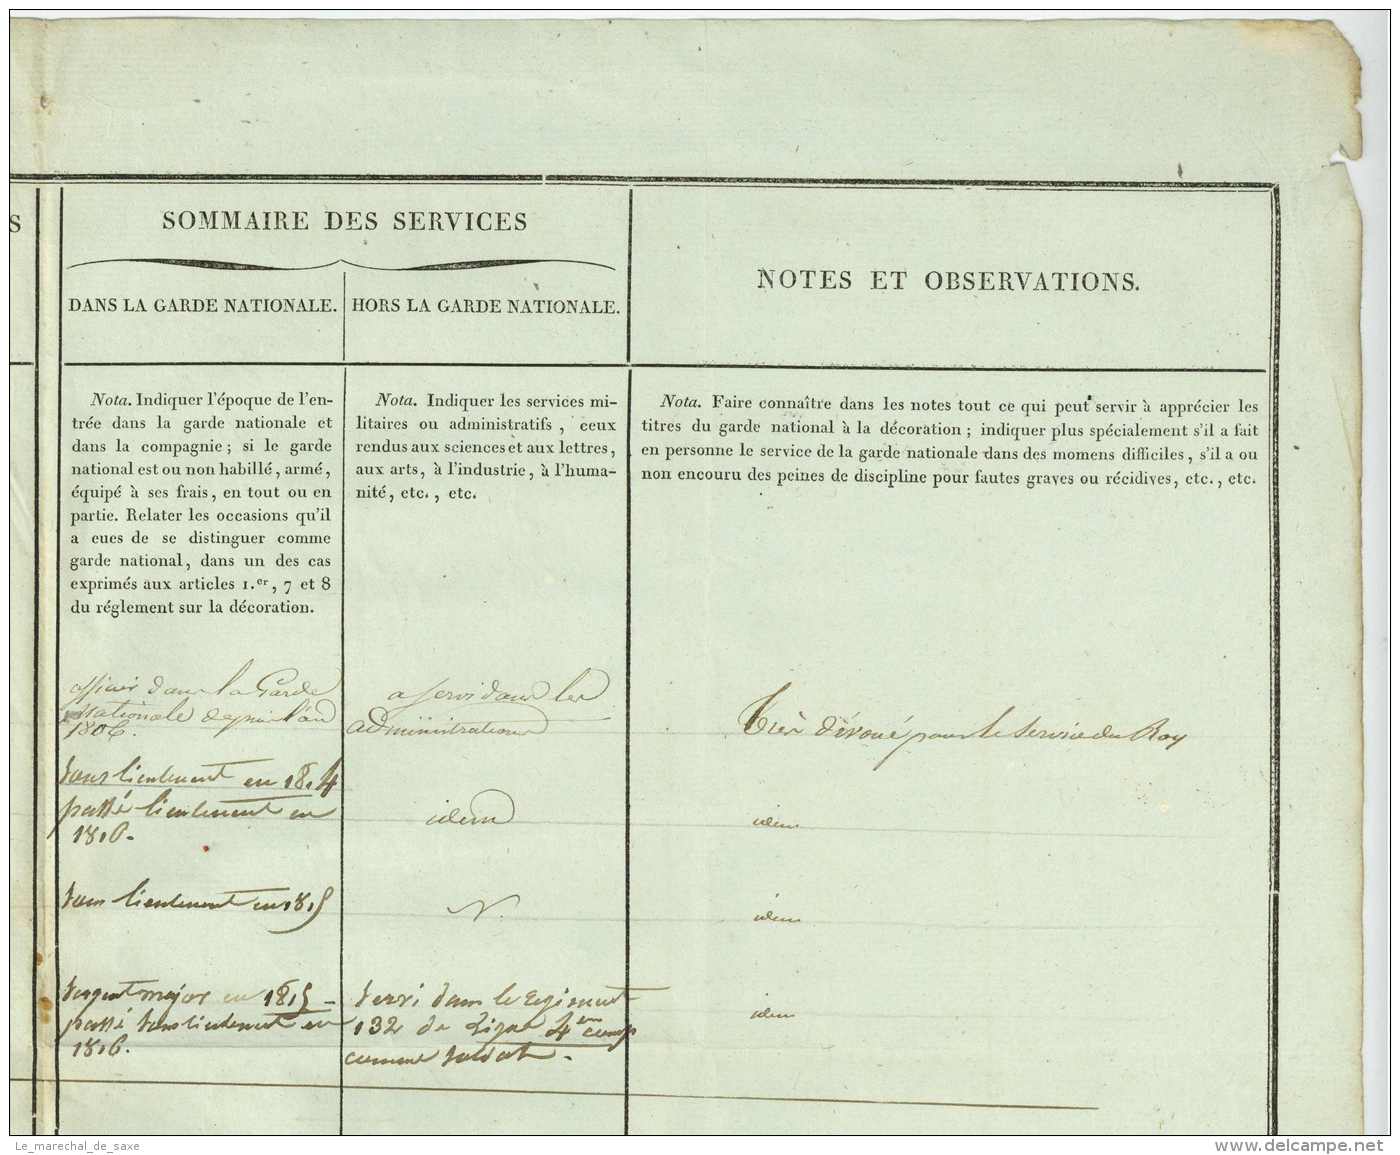 S
SOMMAIRE DES SERVICES
DANS LA GARDE NATIONALE.
HORS LA GARDE NATIONALE.
NOTES ET OBSERVATIONS.
Nota. Indiquer l'époque de l'en-
trée dans la garde nationale et
dans la compagnie ; si le garde
national est ou non habillé, armé,
équipé à ses frais, en tout ou en
partie. Relater les occasions qu'il
a eues de se distinguer comme
garde national, dans un des cas
exprimés aux articles 1.er, 7 et 8
du réglement sur la décoration.
Nota. Indiquer les services mi-
litaires ou administratifs, ceux
rendus aux sciences et aux lettres,
aux arts, à l'industrie, à l'huma-
nité, etc., etc.
Nota. Faire connaître dans les notes tout ce qui peut servir à apprécier les
titres du garde national à la décoration ; indiquer plus spécialement s'il a fait
en personne le service de la garde nationale dans des momens difficiles, s'il a ou
non encouru des peines de discipline pour fautes graves ou récidives, etc., etc.
officier dans la Garde
Nationale depuis l'an
1806.
a servi dans les
administrations
très dévoué pour le service du Roy
sous lieutenant en 1814
passé lieutenant en
1816.
idem
idem
sous lieutenant en 1815
N.
idem
sergent major en 1815
passé sous lieutenant en
1816.
servi dans le regiment
132 de Ligne 4em comp
comme soldat.
idem
Le_marechal_de_saxe
www.delcampe.net